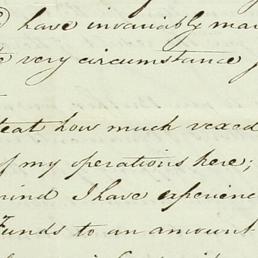 have invariably ma
very circumstance
eat how much vexed
of my operations here;
mind I have experienc
Funds to an amount